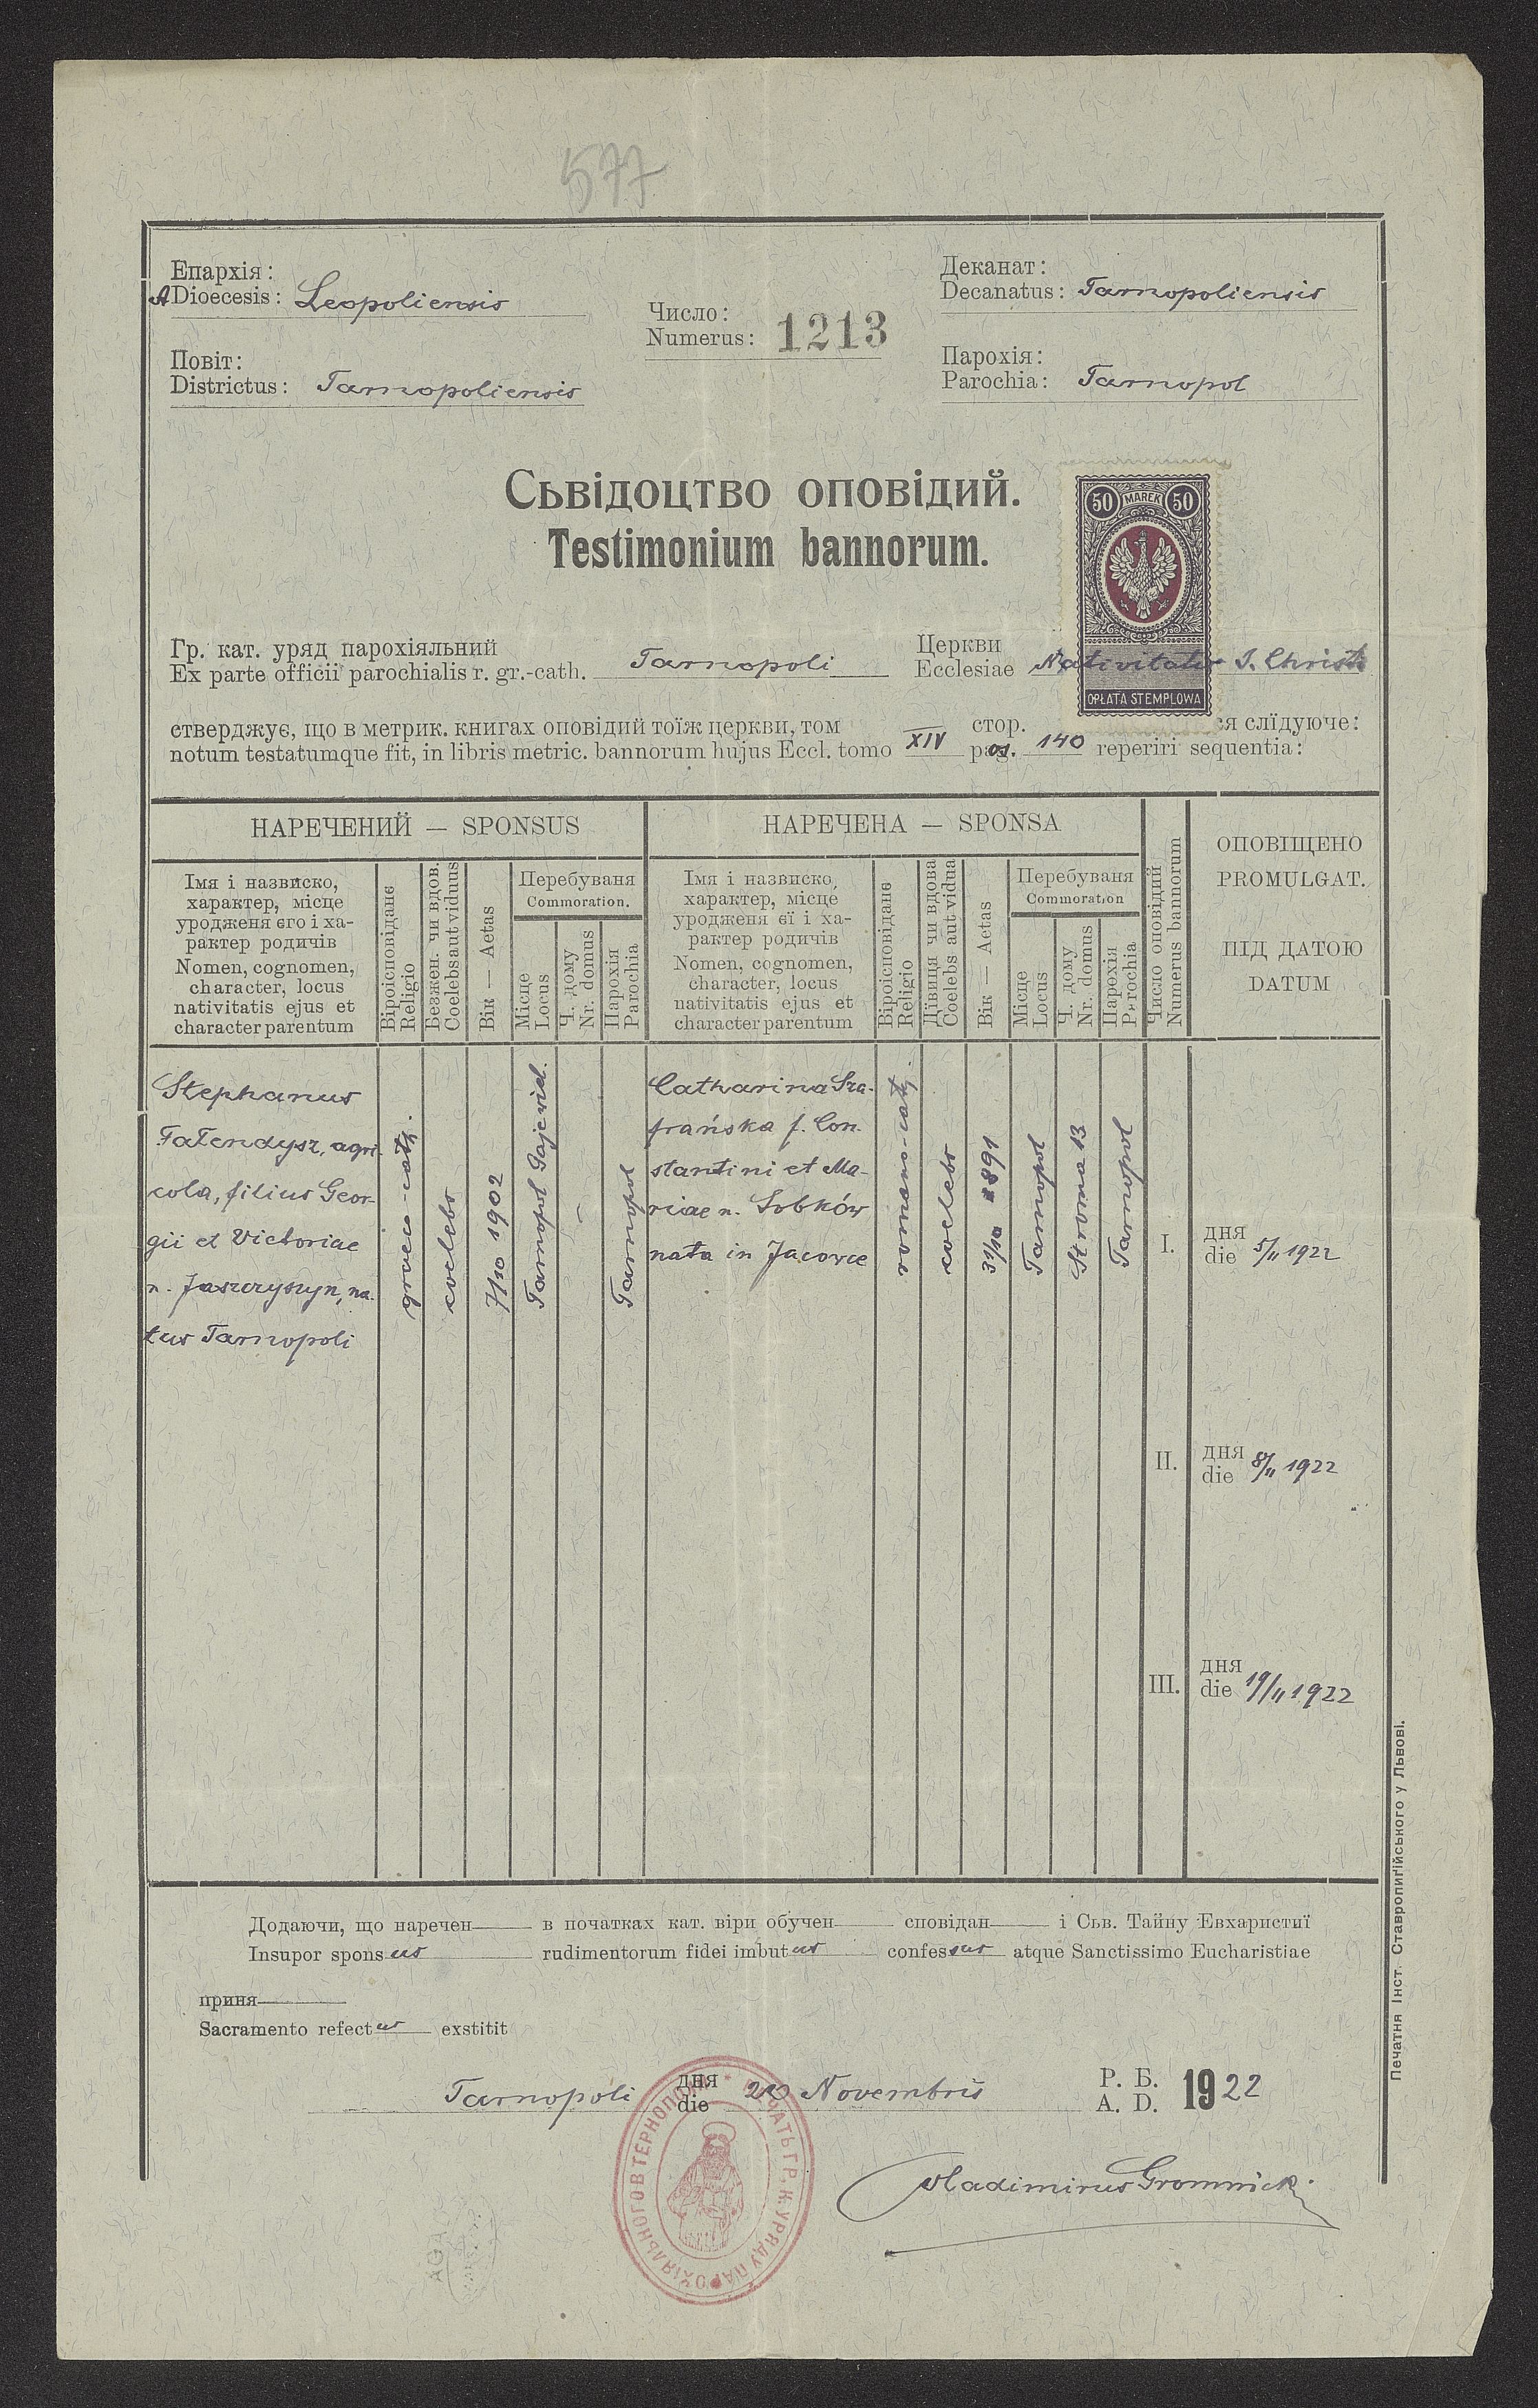 577
Епархія:
ADioecesis: Leopoliensis
Повіт:
Districtus: Tarnopoliensis
Число:
Numerus: 1213
Деканат:
Decanatus: Tarnopoliensis
Парохія:
Parochia: Tarnopol
Сьвідоцтво оповідий.
Testimonium bannorum.
50 MAREK 50
OPŁATA STEMPLOWA
Гр. кат. уряд парохіяльний
Ex parte officii parochialis r. gr.-cath. Tarnopoli
Церкви
Ecclesiae Nativitatis I. Christi
стверджує, що в метрик. книгах оповідий тоїж церкви, том стор. ся слїдуюче:
notum testatumque fit, in libris metric. bannorum hujus Eccl. tomo XIV pag. 140 reperiri sequentia:
НАРЕЧЕНИЙ — SPONSUS
Імя і назвиско,
характер, місце
уродженя єго і ха-
рактер родичів
Nomen, cognomen,
character, locus
nativitatis ejus et
character parentum
Віроісповідане
Religio
Безжен. чи вдов.
Coelebs aut viduus
Вік — Aetas
Перебуваня
Commoration.
Місце
Locus
Ч. дому
Nr. domus
Парохія
Parochia
НАРЕЧЕНА — SPONSA
Імя і назвиско,
характер, місце
уродженя єї і ха-
рактер родичів
Nomen, cognomen,
character, locus
nativitatis ejus et
character parentum
Віроісповідане
Religio
Дївиця чи вдова
Coelebs aut vidua
Вік — Aetas
Перебуваня
Commoration
Місце
Locus
Ч. дому
Nr. domus
Парохія
Parochia
Число оповідий
Numerus bannorum
ОПОВІЩЕНО
PROMULGAT.
ПІД ДАТОЮ
DATUM
Stephanus
Fałendysz, agri-
cola, filius Geor-
gii et Victoriae
n. Jaszczyszyn, na-
tus Tarnopoli
graeco-cath.
coelebs
7/10 1902
Tarnopol Gaje vid.
-
Tarnopol
Catharina Sza-
frańska f. Con-
stantini et Ma-
riae n. Sobków
nata in Jacowce
romano-cath.
coelebs
31/10 1891
Tarnopol
Stroma 13
Tarnopol
I. дня
die 5/11 1922
II. дня
die 8/11 1922
III. дня
die 19/11 1922
Додаючи, що наречен в початках кат. віри обучен сповідан і Сьв. Тайну Евхаристиї
Insupor sponsus rudimentorum fidei imbutus confessus atque Sanctissimo Eucharistiae
приня
Sacramento refectus exstitit
Tarnopoli дня
die 20 Novembris Р. Б.
A. D. 1922
ПЕЧАТЬ ГР. К. УРЯДУ ПАРОХІЯЛЬНОГО В ТЕРНОПОЛИ
Vladimirus Gromnicki
Печатня Інст. Ставропигійського у Львові.